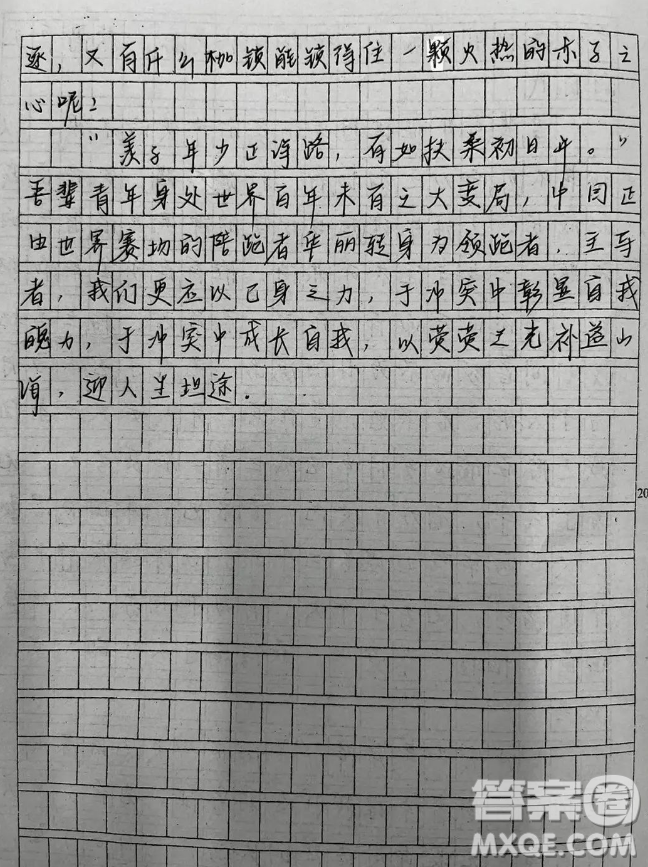 逐，又有什么枷锁能锁得住一颗火热的赤子之
心呢？
“羡子年少正得路，有如扶桑初日升。”
吾辈青年身处世界百年未有之大变局，中国正
由世界赛场的陪跑者华丽转身为领跑者，主导
者，我们更应以己身之力，于冲突中彰显自我
魄力，于冲突中成长自我，以荧荧之光补益山
海，迎人生坦途．
20
答案圈
MXQE.COM